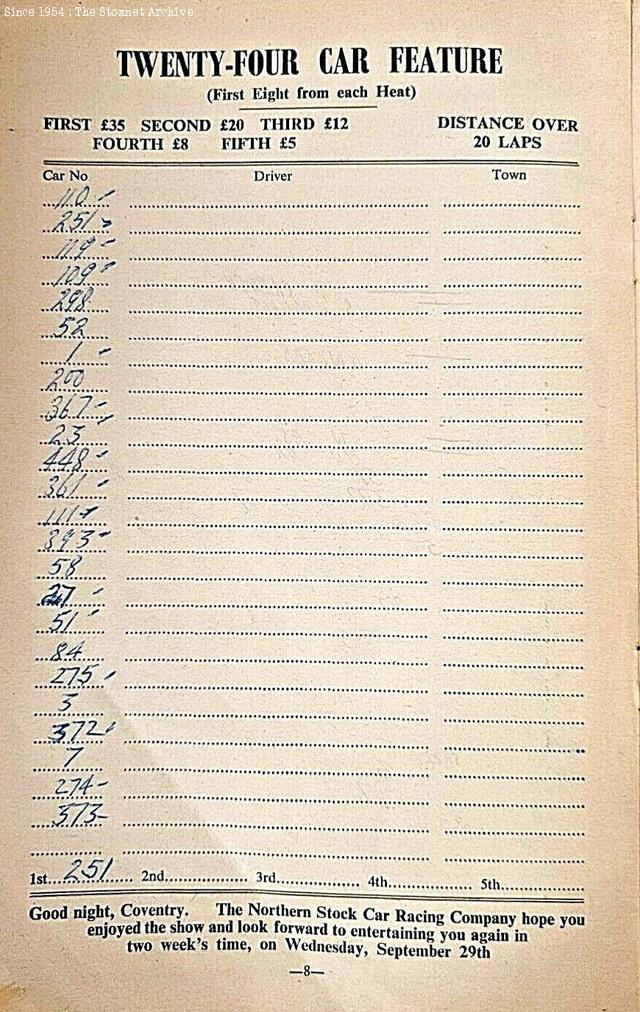 Since 1954 : The Stoxnet Archive
TWENTY-FOUR CAR FEATURE
(First Eight from each Heat)
FIRST £35 SECOND £20 THIRD £12 DISTANCE OVER
FOURTH £8 FIFTH £5 20 LAPS
Car No Driver Town
110 -
251 -
119 -
109 -
298
52
1 -
200
367 -
23 -
448 -
361 -
111 -
393 -
58
27 -
51 -
84
275 -
3
372 -
7
274 -
373 -
1st 251 2nd 3rd 4th 5th
Good night, Coventry. The Northern Stock Car Racing Company hope you
enjoyed the show and look forward to entertaining you again in
two week's time, on Wednesday, September 29th
—8—